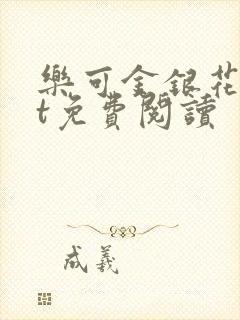 樂可金銀花
t免費閱讀
成羲